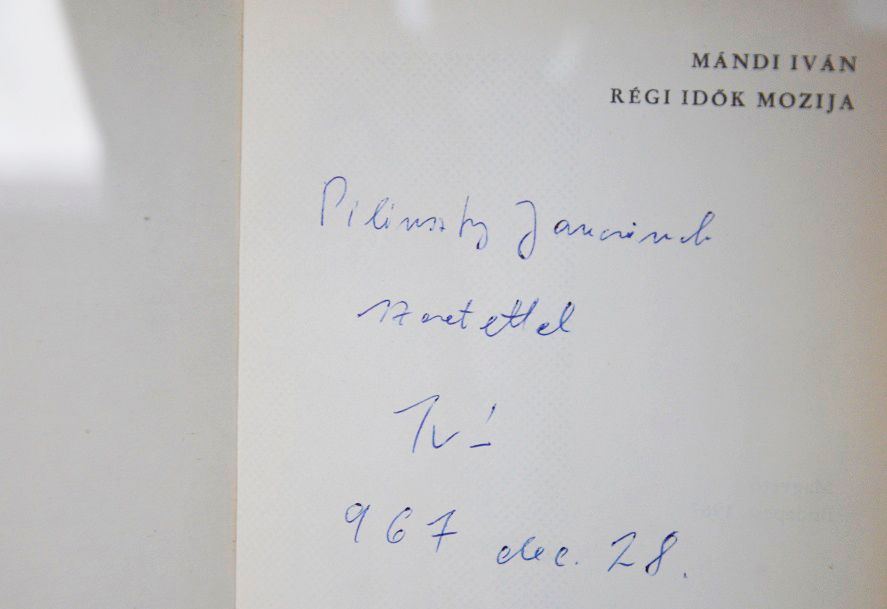 MÁNDI IVÁN
RÉGI IDŐK MOZIJA
Pilinszky Jancsinak
szeretettel
Iván
967 dec. 28.